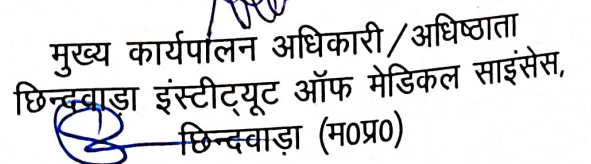 मुख्य कार्यपालन अधिकारी/अधिष्ठाता
छिन्दवाड़ा इंस्टीट्यूट ऑफ मेडिकल साइंसेस,
छिन्दवाड़ा (म0प्र0)